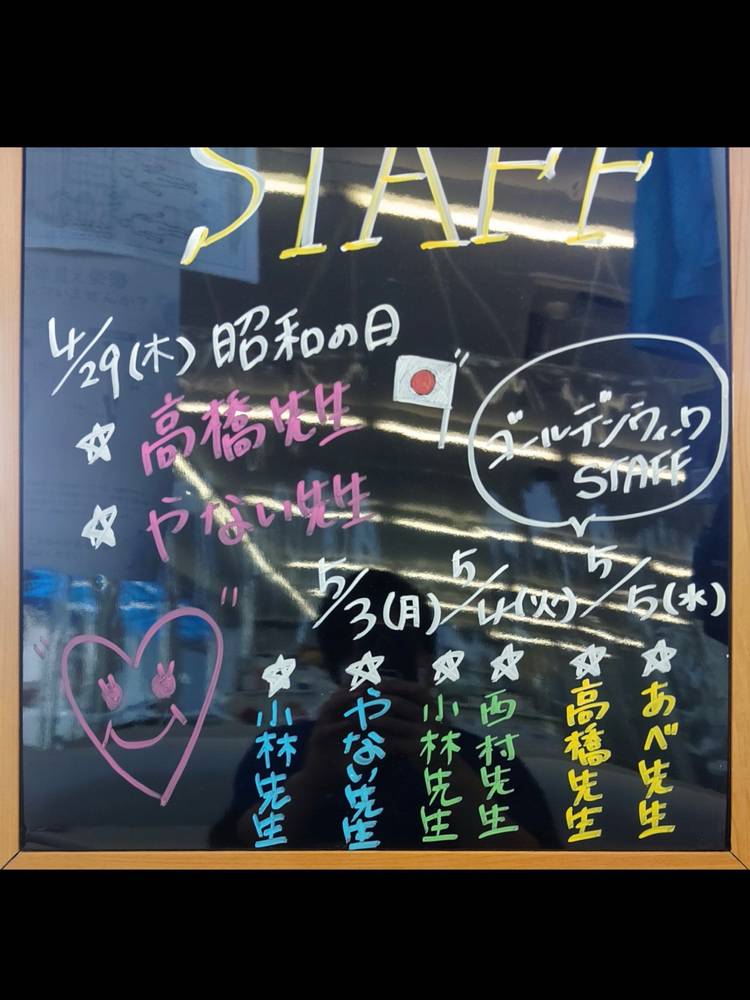 STAFF
4/29(木) 昭和の日
☆ 高橋先生
☆ やない先生
ゴールデンウィーク
STAFF
5/3(月) 5/4(火) 5/5(水)
☆小林先生
☆やない先生
☆小林先生
☆西村先生
☆高橋先生
☆あべ先生